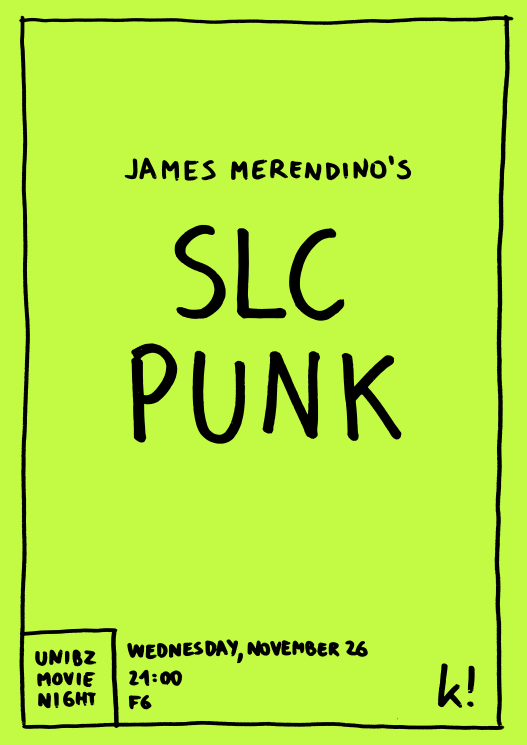 JAMES MERENDINO'S
SLC
PUNK
UNIBZ
MOVIE
NIGHT
WEDNESDAY, NOVEMBER 26
21:00
F6
k!